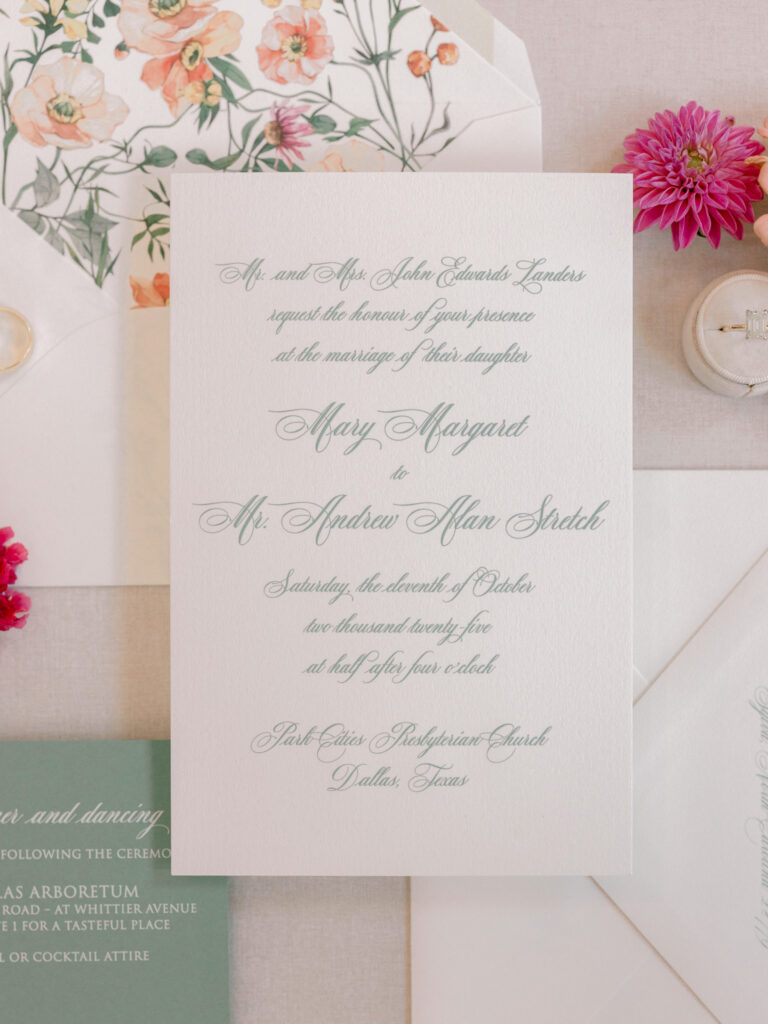 Mr. and Mrs. John Edwards Landers
request the honour of your presence
at the marriage of their daughter
Mary Margaret
to
Mr. Andrew Alan Stretch
Saturday, the eleventh of October
two thousand twenty-five
at half after four o'clock
Park Cities Presbyterian Church
Dallas, Texas
and dancing
FOLLOWING THE
ARBORETUM
ROAD – AT WHITTIER AVENUE
1 FOR A TASTEFUL PLACE
OR COCKTAIL ATTIRE